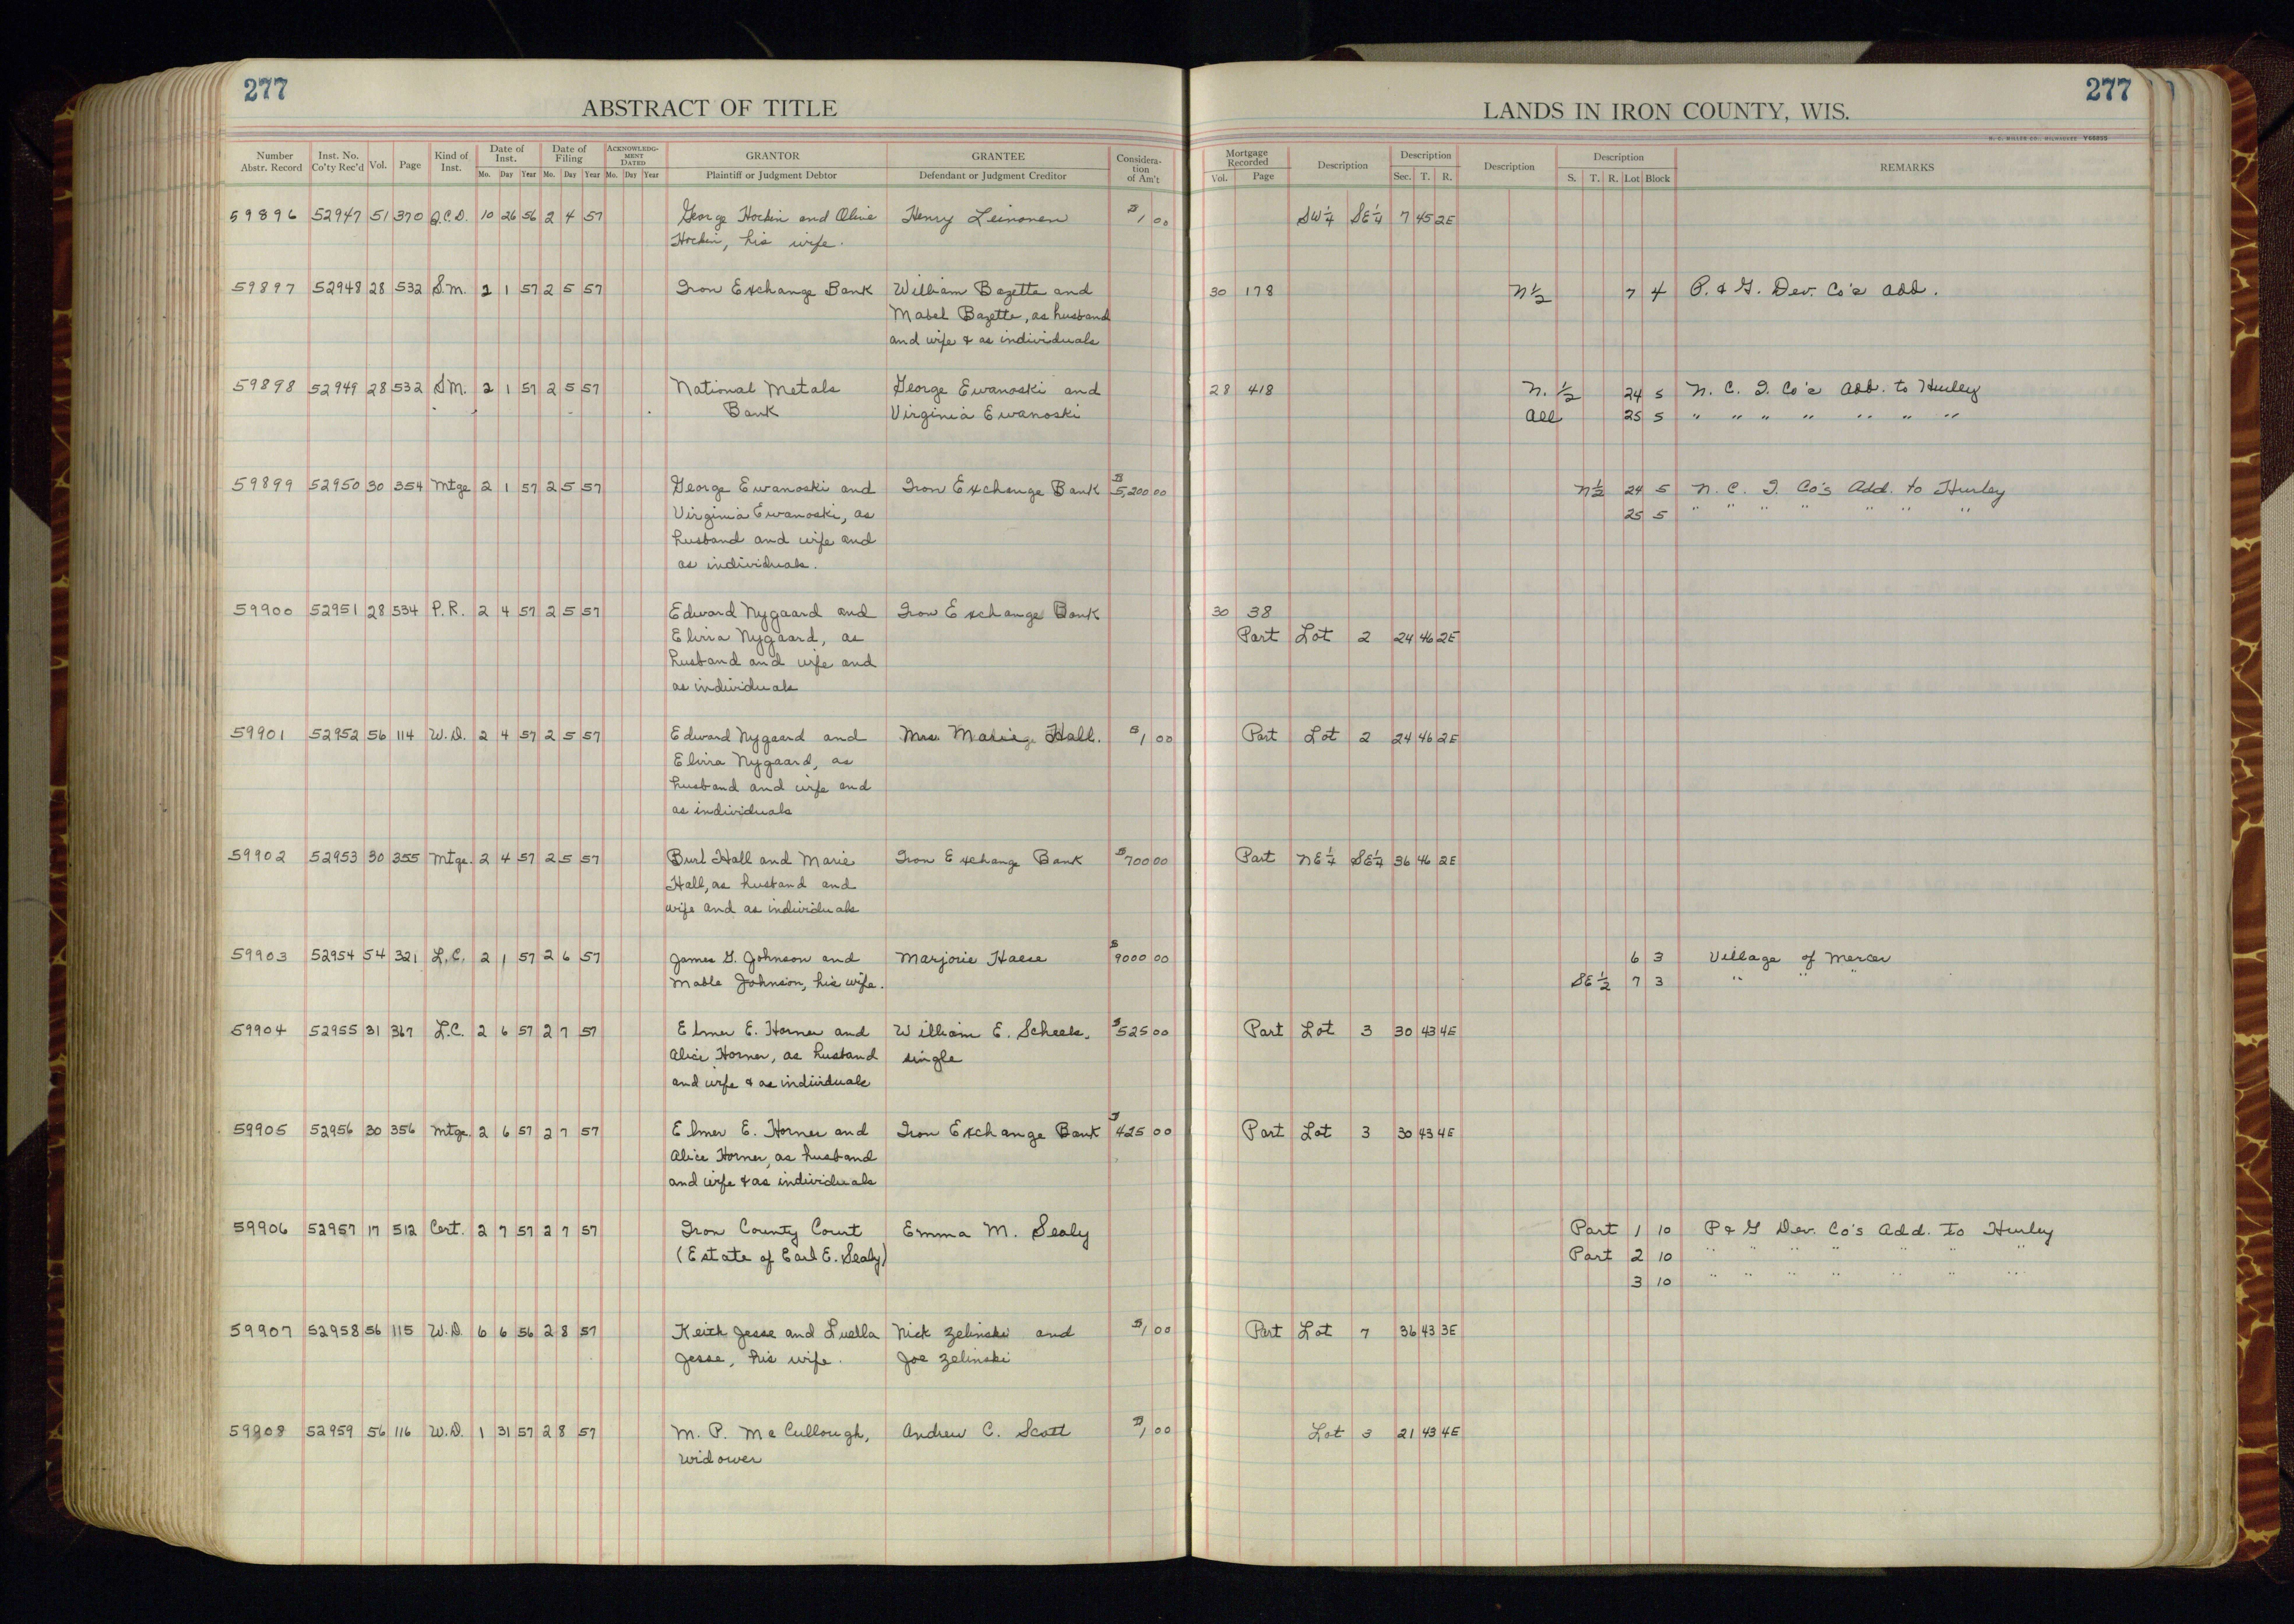 277
ABSTRACT OF TITLE
Number Abstr. Record Inst. No. Co'ty Rec'd Vol. Page Kind of Inst. Date of Inst. Mo. Day Year Date of Filing Mo. Day Year ACKNOWLEDGMENT DATED Mo. Day Year GRANTOR Plaintiff or Judgment Debtor GRANTEE Defendant or Judgment Creditor Consideration of Am't
59896 52947 51 370 Q.C.D. 10 26 56 2 4 57 George Hockin and Olive Henry Leinonen $1 00
Hockin, his wife.
59897 52948 28 532 S.M. 2 1 57 2 5 57 Iron Exchange Bank William Bazette and
Mabel Bazette, as husband
and wife & as individuals
59898 52949 28 532 S.M. 2 1 57 2 5 57 National Metals George Ewanoski and
Bank Virginia Ewanoski
59899 52950 30 354 Mtge 2 1 57 2 5 57 George Ewanoski and Iron Exchange Bank $5,200.00
Virginia Ewanoski, as
husband and wife and
as individuals.
59900 52951 28 534 P.R. 2 4 57 2 5 57 Edward Nygaard and Iron Exchange Bank
Elvira Nygaard, as
husband and wife and
as individuals
59901 52952 56 114 W.D. 2 4 57 2 5 57 Edward Nygaard and Mrs. Marie Hall. $1 00
Elvira Nygaard, as
husband and wife and
as individuals
59902 52953 30 355 Mtge. 2 4 57 2 5 57 Burl Hall and Marie Iron Exchange Bank $700 00
Hall, as husband and
wife and as individuals
59903 52954 54 321 L.C. 2 1 57 2 6 57 James G. Johnson and Marjorie Haese $9000 00
Mable Johnson, his wife.
59904 52955 31 367 L.C. 2 6 57 2 7 57 Elmer E. Horner and William E. Scheels, $525 00
Alice Horner, as husband single
and wife & as individuals
59905 52956 30 356 Mtge. 2 6 57 2 7 57 Elmer E. Horner and Iron Exchange Bank $425 00
Alice Horner, as husband
and wife & as individuals
59906 52957 17 512 Cert. 2 7 57 2 7 57 Iron County Court Emma M. Sealy
(Estate of Earl E. Sealy)
59907 52958 56 115 W.D. 6 6 56 2 8 57 Keith Jesse and Luella Nick Zelinski and $1 00
Jesse, his wife. Joe Zelinski
59908 52959 56 116 W.D. 1 31 57 2 8 57 M. P. McCullough, Andrew C. Scott $1 00
widower
277
LANDS IN IRON COUNTY, WIS.
H. C. MILLER CO., MILWAUKEE
Mortgage Recorded Vol. Page Description Description Sec. T. R. Description Description S. T. R. Lot Block REMARKS
SW¼ SE¼ 7 45 2E
30 178 N½ 7 4 P. & G. Dev. Co's Add.
28 418 N. ½ 24 5 N. C. I. Co's Add. to Hurley
All 25 5 " " " " " " "
N½ 24 5 N. C. I. Co's Add. to Hurley
25 5 " " " " " " "
30 38
Part Lot 2 24 46 2E
Part Lot 2 24 46 2E
Part NE¼ SE¼ 36 46 2E
6 3 Village of Mercer
SE½ 7 3 " " "
Part Lot 3 30 43 4E
Part Lot 3 30 43 4E
Part 1 10 P & G Dev. Co's Add. to Hurley
Part 2 10 " " " " " " "
3 10 " " " " " " "
Part Lot 7 36 43 3E
Lot 3 21 43 4E